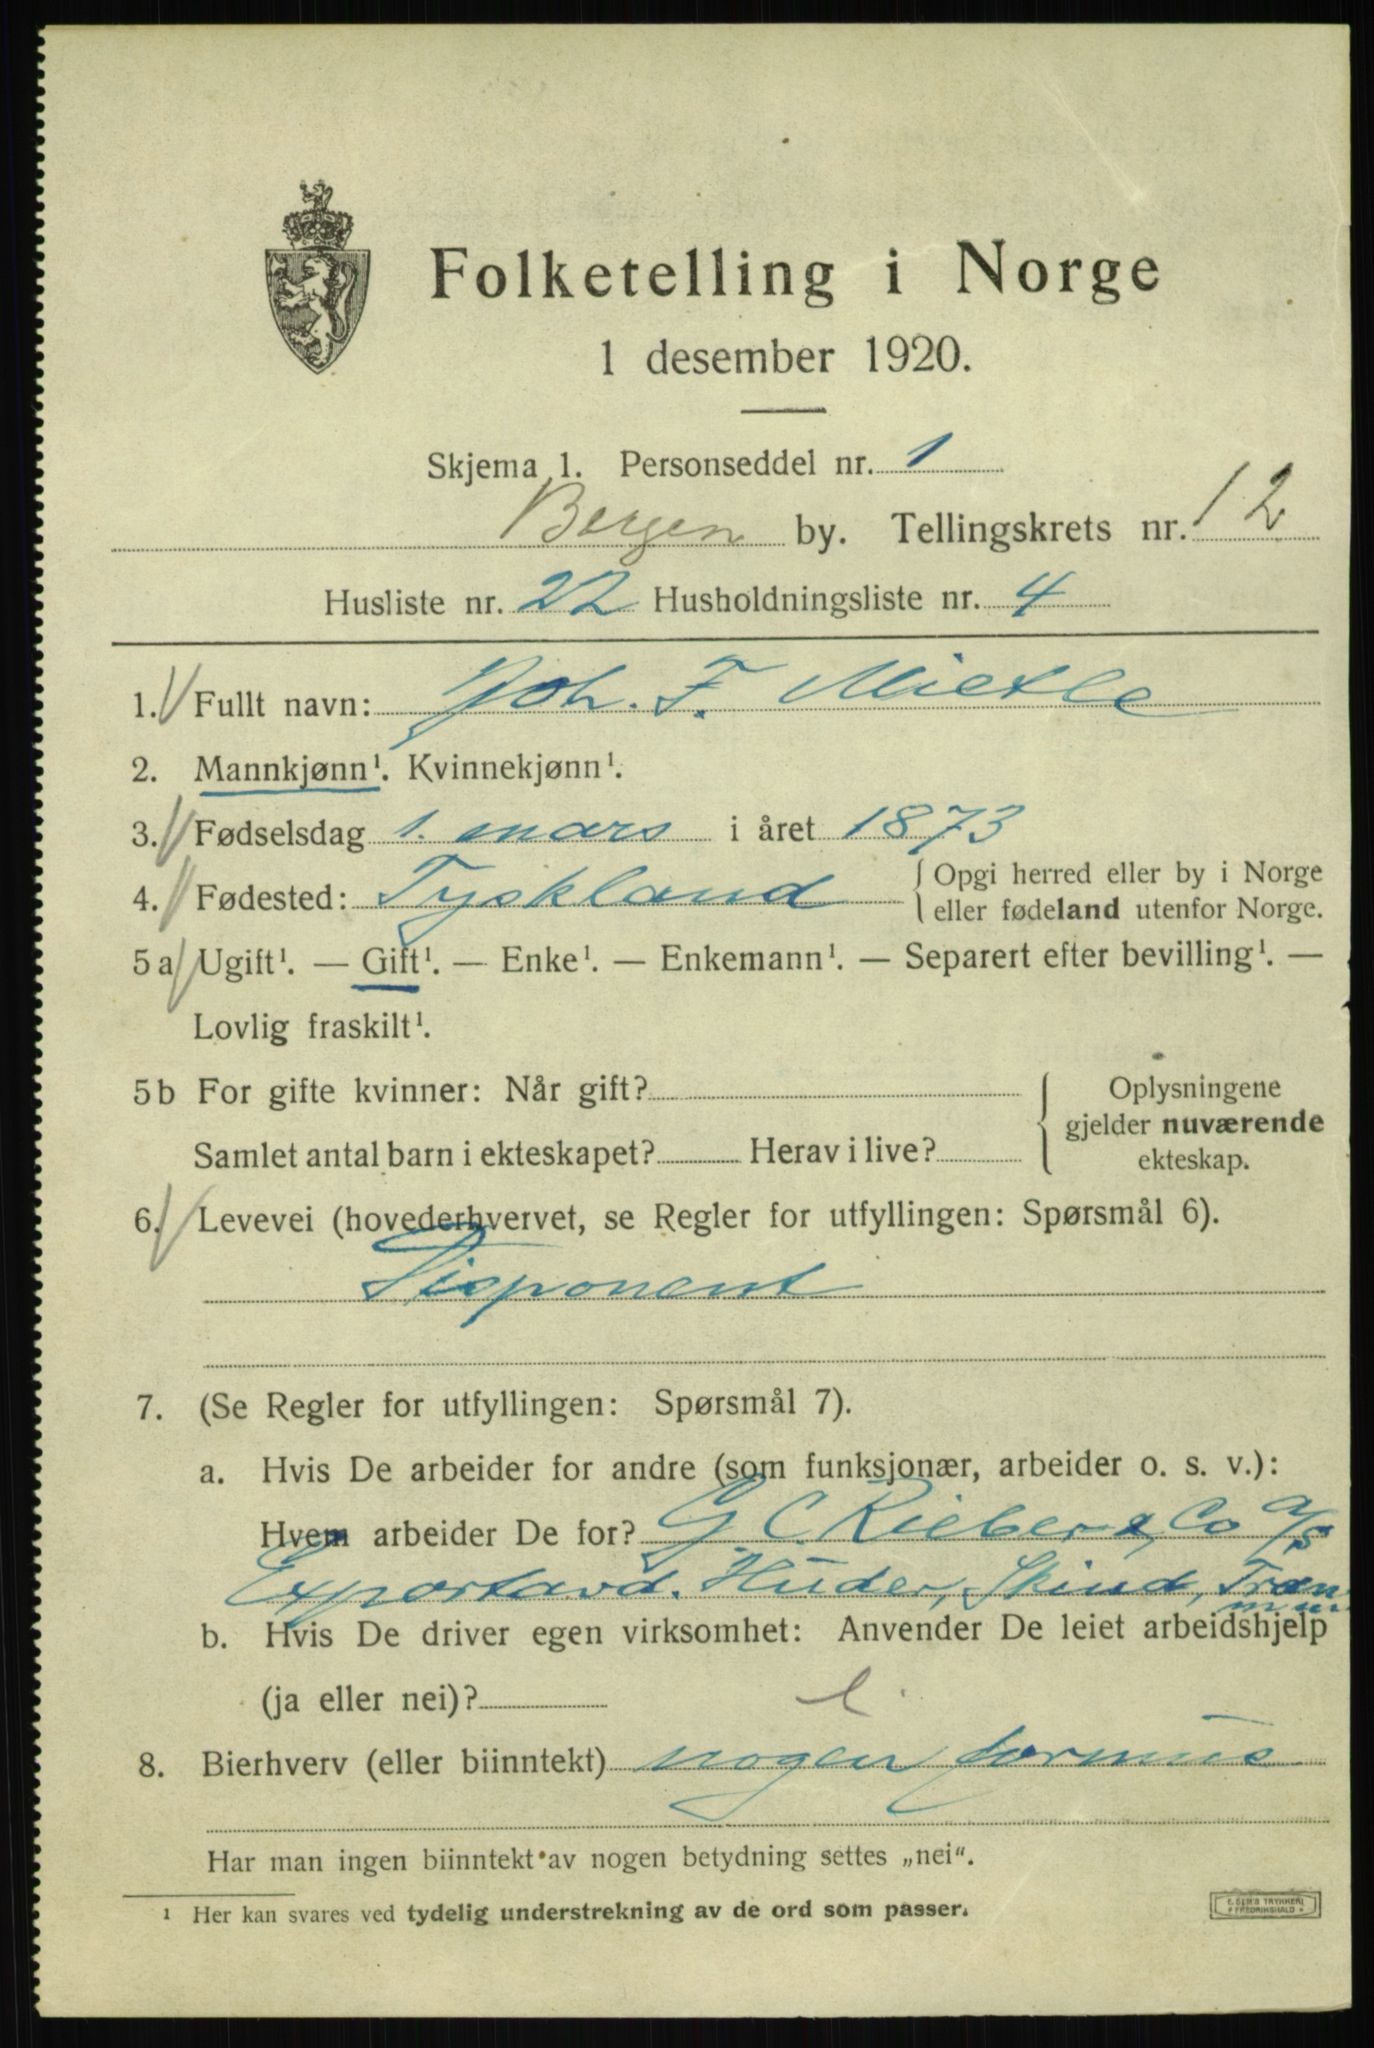 Folketelling i Norge
1 desember 1920.
Skjema 1. Personseddel nr. 1
Bergen by. Tellingskrets nr. 12
Husliste nr. 22 Husholdningsliste nr. 4
1. Fullt navn: Joh. F. Mietle
2. Mannkjønn¹. Kvinnekjønn¹.
3. Fødselsdag 1. mars i året 1873
4. Fødested: Tyskland { Opgi herred eller by i Norge
eller fødeland utenfor Norge.
5 a Ugift¹. — Gift¹. — Enke¹. — Enkemann¹. — Separert efter bevilling¹. —
Lovlig fraskilt¹.
5 b For gifte kvinner: Når gift?
Samlet antal barn i ekteskapet? Herav i live?
{ Oplysningene
gjelder nuværende
ekteskap.
6. Levevei (hovederhvervet, se Regler for utfyllingen: Spørsmål 6).
Disponent
7. (Se Regler for utfyllingen: Spørsmål 7).
a. Hvis De arbeider for andre (som funksjonær, arbeider o. s. v.):
Hvem arbeider De for? G. C. Rieber & Co a/s
Exportavd. Huder, Skind, Tran
b. Hvis De driver egen virksomhet: Anvender De leiet arbeidshjelp
(ja eller nei)?
8. Bierhverv (eller biinntekt) nogen formue
Har man ingen biinntekt av nogen betydning settes „nei“.
¹ Her kan svares ved tydelig understrekning av de ord som passer.
E. SEM'S TRYKKERI
FREDRIKSHALD